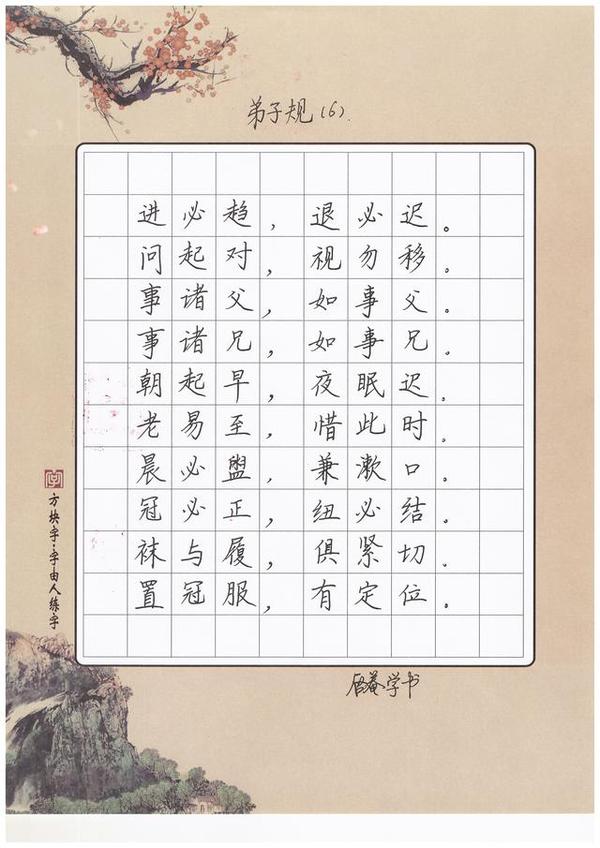 弟子规（6）.
进必趋，退必迟。
问起对，视勿移。
事诸父，如事父。
事诸兄，如事兄。
朝起早，夜眠迟。
老易至，惜此时。
晨必盥，兼漱口。
冠必正，纽必结。
袜与履，俱紧切。
置冠服，有定位。
方块字·字由人练字
学书